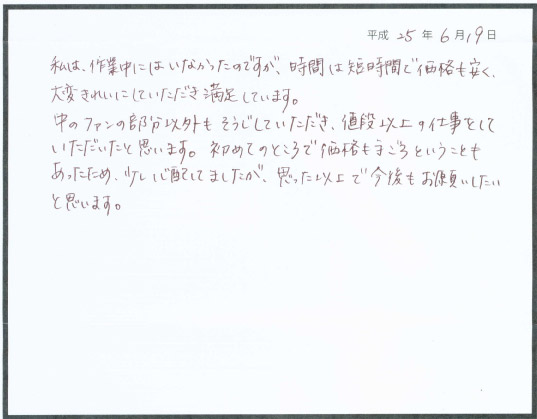 平成 25 年 6 月 19 日
私は、作業中にはいなかったのですが、時間は短時間で価格も安く、
大変きれいにしていただき満足しています。
中のファンの部分以外もそうじしていただき、値段以上の仕事をして
いただいたと思います。初めてのところで価格も手ごろということも
あったため、少し心配してましたが、思った以上で今後もお願いしたい
と思います。